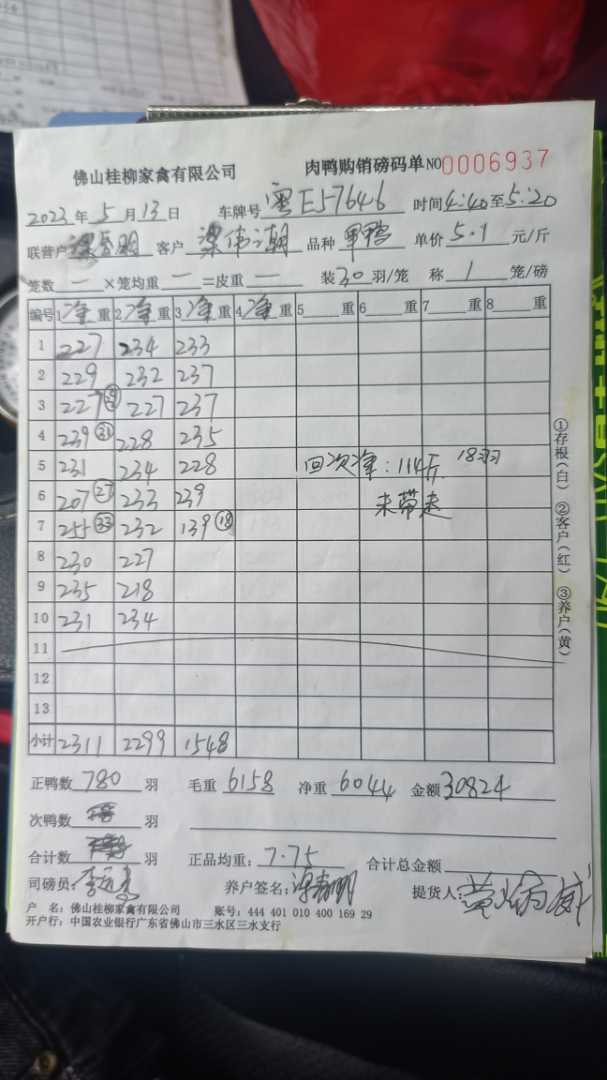 佛山桂柳家禽有限公司 肉鸭购销磅码单 NO 0006937
2023年5月13日 车牌号 粤E57646 时间 4:40至5:20
联营户 客户 梁伟潮 品种 甲鸭 单价 5.1 元/斤
笼数 — ×笼均重 — =皮重 — 装30羽/笼 称 1 笼/磅
编号 1净重 2净重 3净重 4净重 5 重 6 重 7 重 8 重
1 227 234 233
2 229 232 237
3 227 227 237
4 239 ㉛ 228 235
5 231 234 228 回次净:114斤 18羽
6 207 ㉗ 233 239 未带走
7 255 ㉝ 232 139 ⑱
8 230 227
9 235 218
10 231 234
11
12
13
小计 2311 2299 1548
正鸭数 780 羽 毛重 6158 净重 6044 金额 30824
次鸭数 羽
合计数 羽 正品均重: 7.75 合计总金额
司磅员: 养户签名: 提货人: 黄炳威
户 名: 佛山桂柳家禽有限公司 账号: 444 401 010 400 169 29
开户行: 中国农业银行广东省佛山市三水区三水支行
①存根(白) ②客户(红) ③养户(黄)